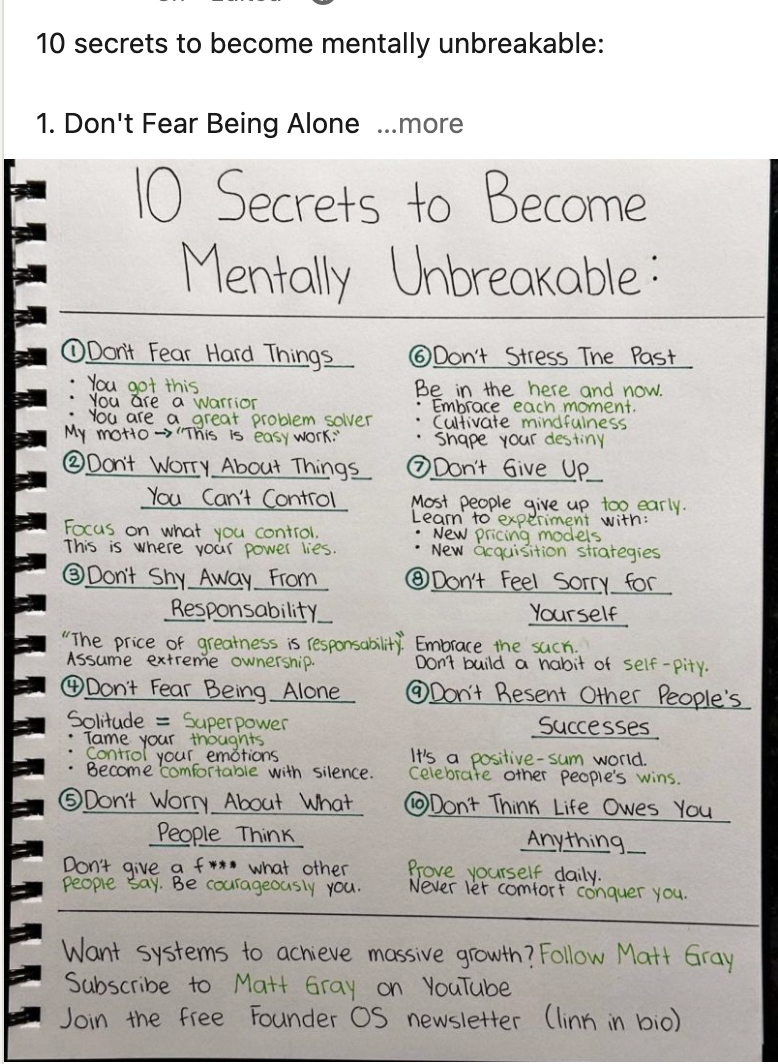 10 secrets to become mentally unbreakable:
1. Don't Fear Being Alone ...more
10 Secrets to Become
Mentally Unbreakable:
① Don't Fear Hard Things
• You got this
• You are a warrior
• You are a great problem solver
My motto → "This is easy work."
② Don't Worry About Things
You Can't Control
Focus on what you control.
This is where your power lies.
③ Don't Shy Away From
Responsability
"The price of greatness is responsability".
Assume extreme ownership.
④ Don't Fear Being Alone
Solitude = Superpower
• Tame your thoughts
• Control your emotions
• Become comfortable with silence.
⑤ Don't Worry About What
People Think
Don't give a f*** what other
people say. Be courageously you.
⑥ Don't Stress The Past
Be in the here and now.
• Embrace each moment.
• Cultivate mindfulness
• Shape your destiny
⑦ Don't Give Up
Most people give up too early.
Learn to experiment with:
• New pricing models
• New acquisition strategies
⑧ Don't Feel Sorry for
Yourself
Embrace the suck.
Don't build a habit of self-pity.
⑨ Don't Resent Other People's
Successes
It's a positive-sum world.
Celebrate other people's wins.
⑩ Don't Think Life Owes You
Anything
Prove yourself daily.
Never let comfort conquer you.
Want systems to achieve massive growth? Follow Matt Gray
Subscribe to Matt Gray on YouTube
Join the free Founder OS newsletter (link in bio)